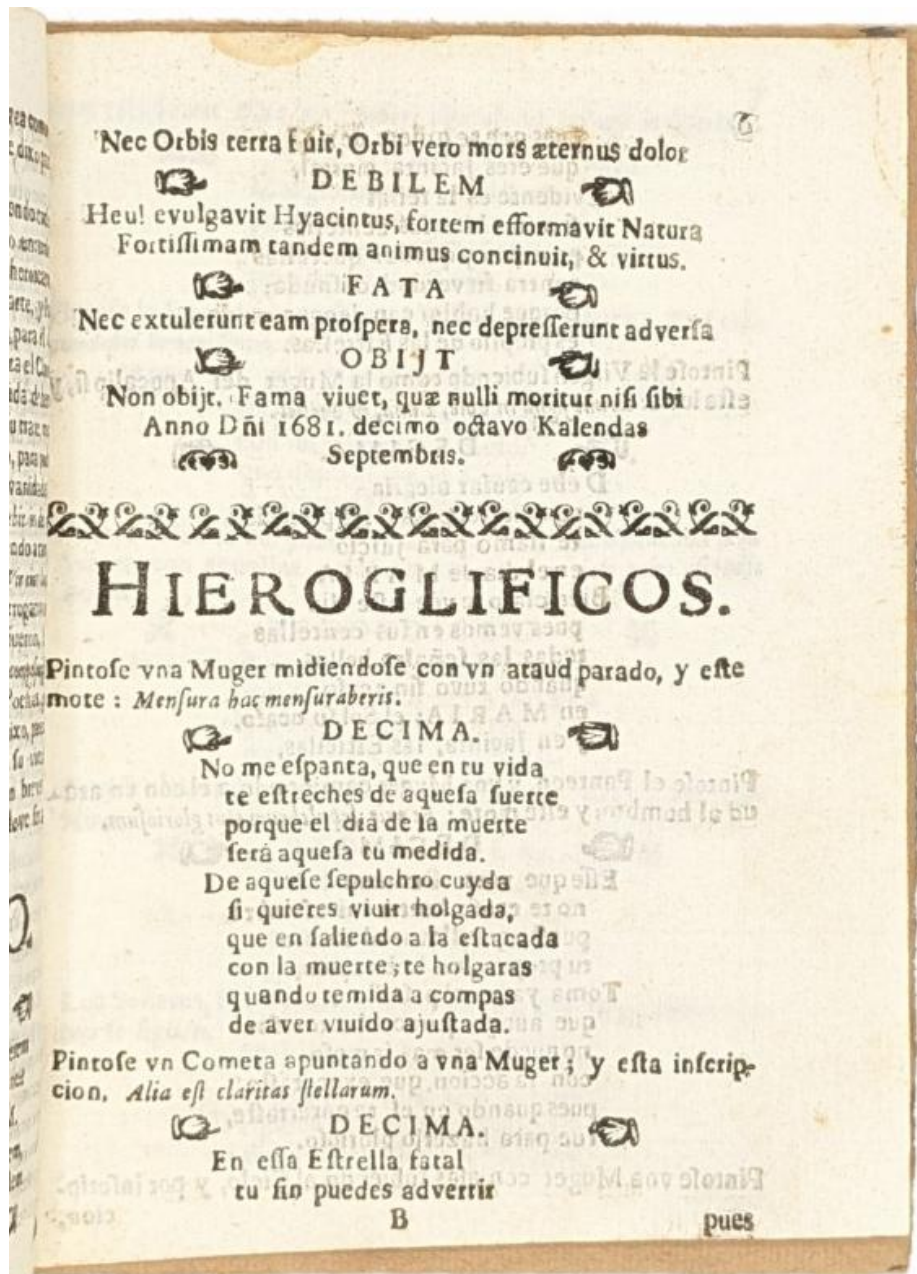 Nec Orbis terra fuit, Orbi vero mors æternus dolor
DEBILEM
Heu! evulgavit Hyacintus, fortem efformavit Natura
Fortissimam tandem animus continuit, & virtus.
FATA
Nec extulerunt eam prospera, nec depresserunt adversa
OBIJT
Non obijt. Fama viuet, quæ nulli moritur nisi sibi
Anno Dñi 1681. decimo octavo Kalendas
Septembris.
HIEROGLIFICOS.
Pintose vna Muger midiendose con vn ataud parado, y este
mote : Mensura hac mensuraberis.
DECIMA.
No me espanta, que en tu vida
te estreches de aquesa suerte
porque el dia de la muerte
serà aquesa tu medida.
De aquese sepulchro cuyda
si quieres viuir holgada,
que en saliendo a la estacada
con la muerte, te holgaras
quando temida a compas
de aver viuido ajustada.
Pintose vn Cometa apuntando a vna Muger; y esta inscrip-
cion. Alia est claritas stellarum.
DECIMA.
En essa Estrella fatal
tu fin puedes advertir
B
pues